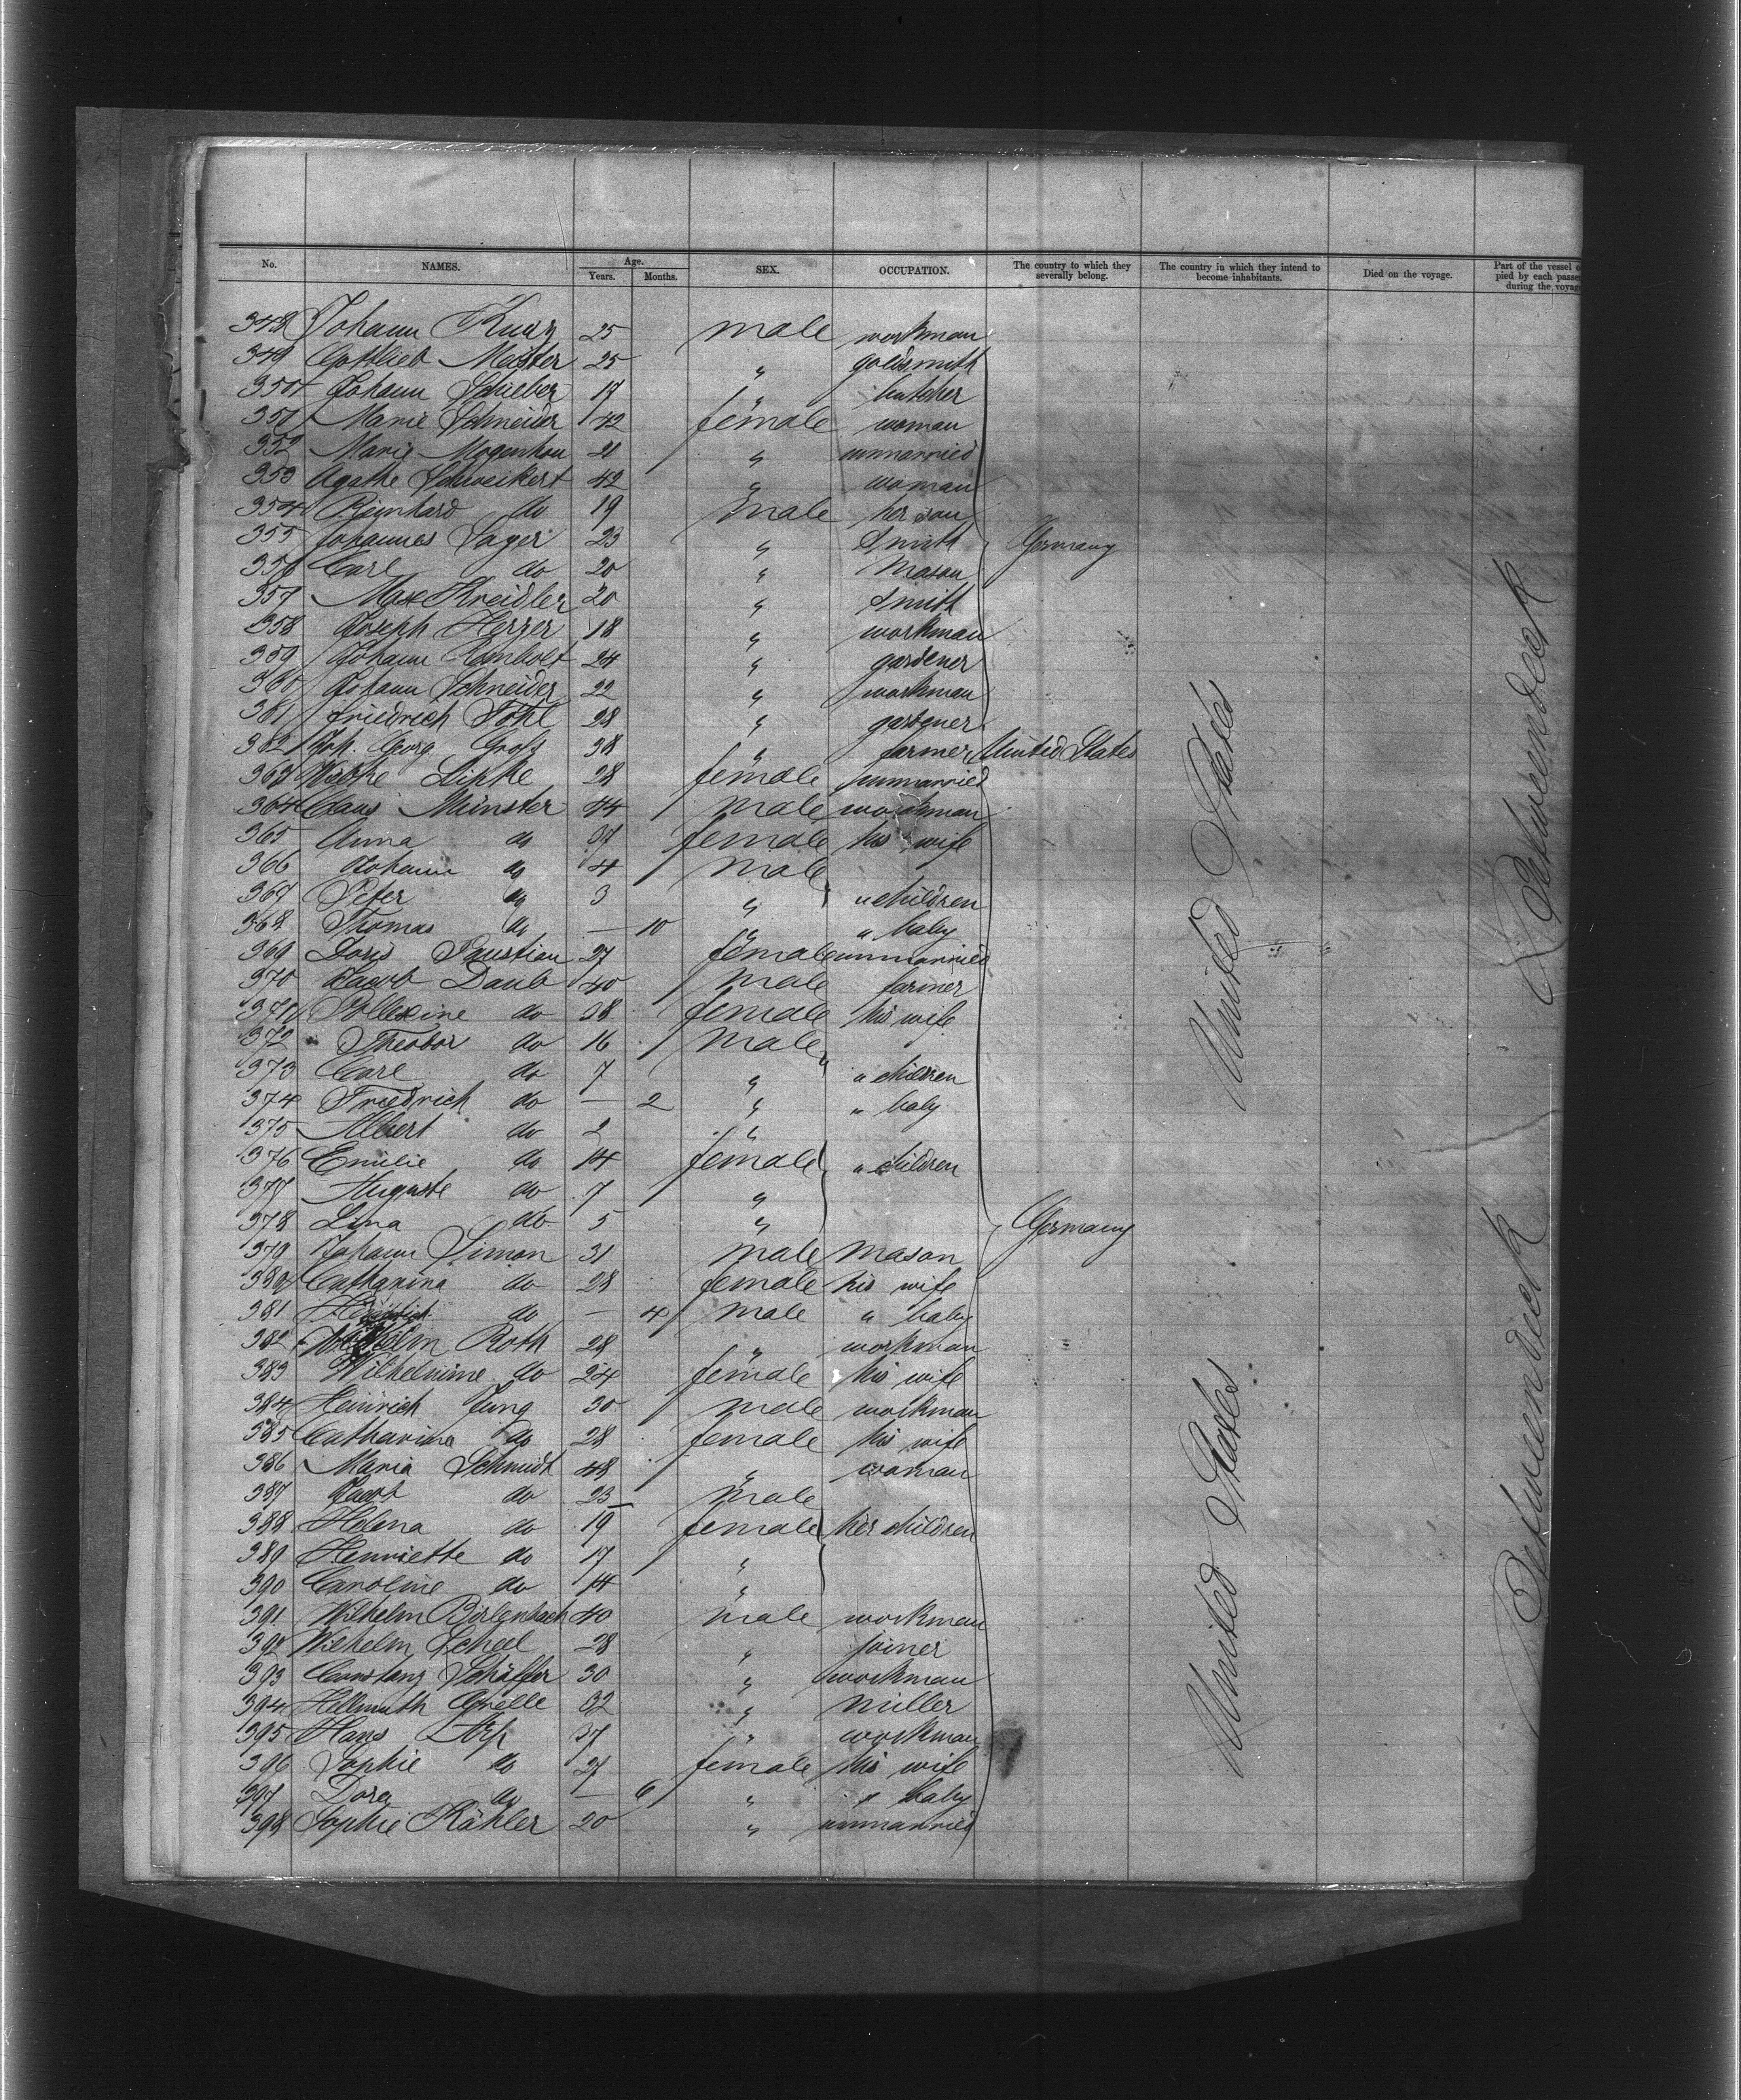 No. NAMES. Age. Years. Months. SEX. OCCUPATION. The country to which they severally belong. The country in which they intend to become inhabitants. Died on the voyage. Part of the vessel pied by each passe during the voyag
348 Johann Kunz 25 male workman
349 Gottlieb Meister 25 " goldsmith
350 Johann Schieber 17 " butcher
351 Marie Schneider 42 female woman
352 Marie 21 " unmarried
353 Agathe Schweikert 42 " woman
354 Reinhard do 19 male her son
355 Johannes Sayer 23 " Smith Germany
356 Carl do 20 " Mason
357 Max Kreidler 20 " Smith
358 Joseph Herzer 18 " workman
359 Johann 24 " gardener
360 Johann Schneider 22 " workman
361 Friedrich 28 " gardener
362 Joh. Georg 38 " farmer United States
363 28 female unmarried
364 Claus Münster 44 male workman
365 Anna do 37 female his wife
366 Johann do 4 male
367 Peter do 3 " " children
368 Thomas do — 10 " " baby
369 Doris Paustian 27 female unmarried
370 Jacob Daub 40 male farmer
371 do 38 female his wife
372 Theodor do 16 male
373 Carl do 7 " " children
374 Friedrich do — 2 " " baby
375 Albert do 2 "
376 Emilie do 14 female " children
377 Auguste do 7 "
378 Lina do 5 " Germany
379 Johann Simon 31 male mason
380 Catharina do 28 female his wife
381 do — 4 male " baby
382 Wilhelm Roth 28 " workman
383 Wilhelmine do 24 female his wife
384 Heinrich Jung 30 male workman
385 Catharina do 28 female his wife
386 Maria Schmidt 48 " woman
387 Jacob do 23 male
388 Helena do 19 female her children
389 Henriette do 17 "
390 Caroline do 14 "
391 Wilhelm Birlenbach 40 male workman
392 Wilhelm Scheel 28 " joiner
393 Constanz Schäffer 30 " workman
394 Hellmuth 32 " miller
395 Hans Arp 37 " workman
396 Sophie do 27 female his wife
397 Dora do — 6 " " baby
398 Sophie Kähler 20 " unmarried
United States
United States
Betweendeck
Betweendeck